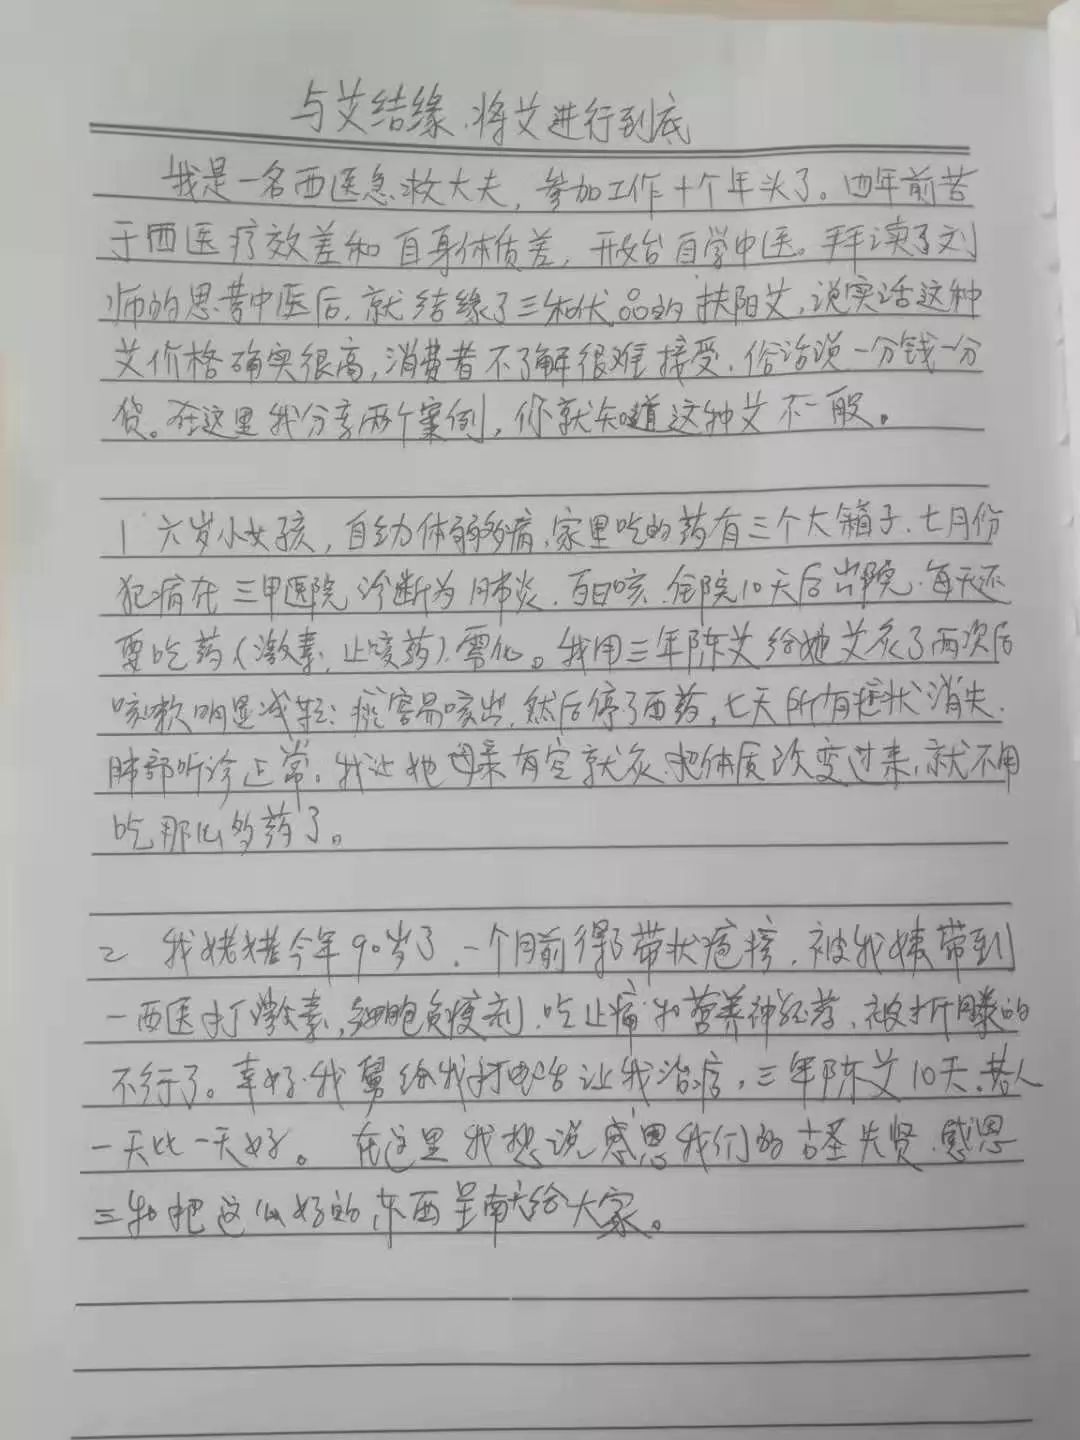 与艾结缘.将艾进行到底
我是一名西医急救大夫，参加工作十个年头了。四年前苦
于西医疗效差和自身体质差，开始自学中医。拜读了刘
师的思考中医后.就结缘了三和伏品的扶阳艾,说实话这种
艾价格确实很高,消费者不了解很难接受.俗话说一分钱一分
货。在这里我分享两个案例，你就知道这种艾不一般。
1 六岁小女孩，自幼体弱多病.家里吃的药有三个大箱子.七月份
犯病在三甲医院诊断为肺炎.百日咳.住院10天后出院.每天还
要吃药(激素,止咳药).雾化。我用三年陈艾给她艾灸了两次后
咳嗽明显减轻;痰容易咳出.然后停了西药，七天所有症状消失.
肺部听诊正常.我让她母亲有空就灸.把体质改变过来,就不用
吃那么多药了。
2 我姥姥今年90岁了.一个月前得了带状疱疹.被我姨带到
一西医打激素,细胞免疫剂.吃止痛和营养神经药.被折腾的
不行了。幸好.我舅给我打电话让我治疗，三年陈艾10天.老人
一天比一天好。在这里我想说感恩我们的古圣先贤.感恩
三和把这么好的东西呈献给大家。